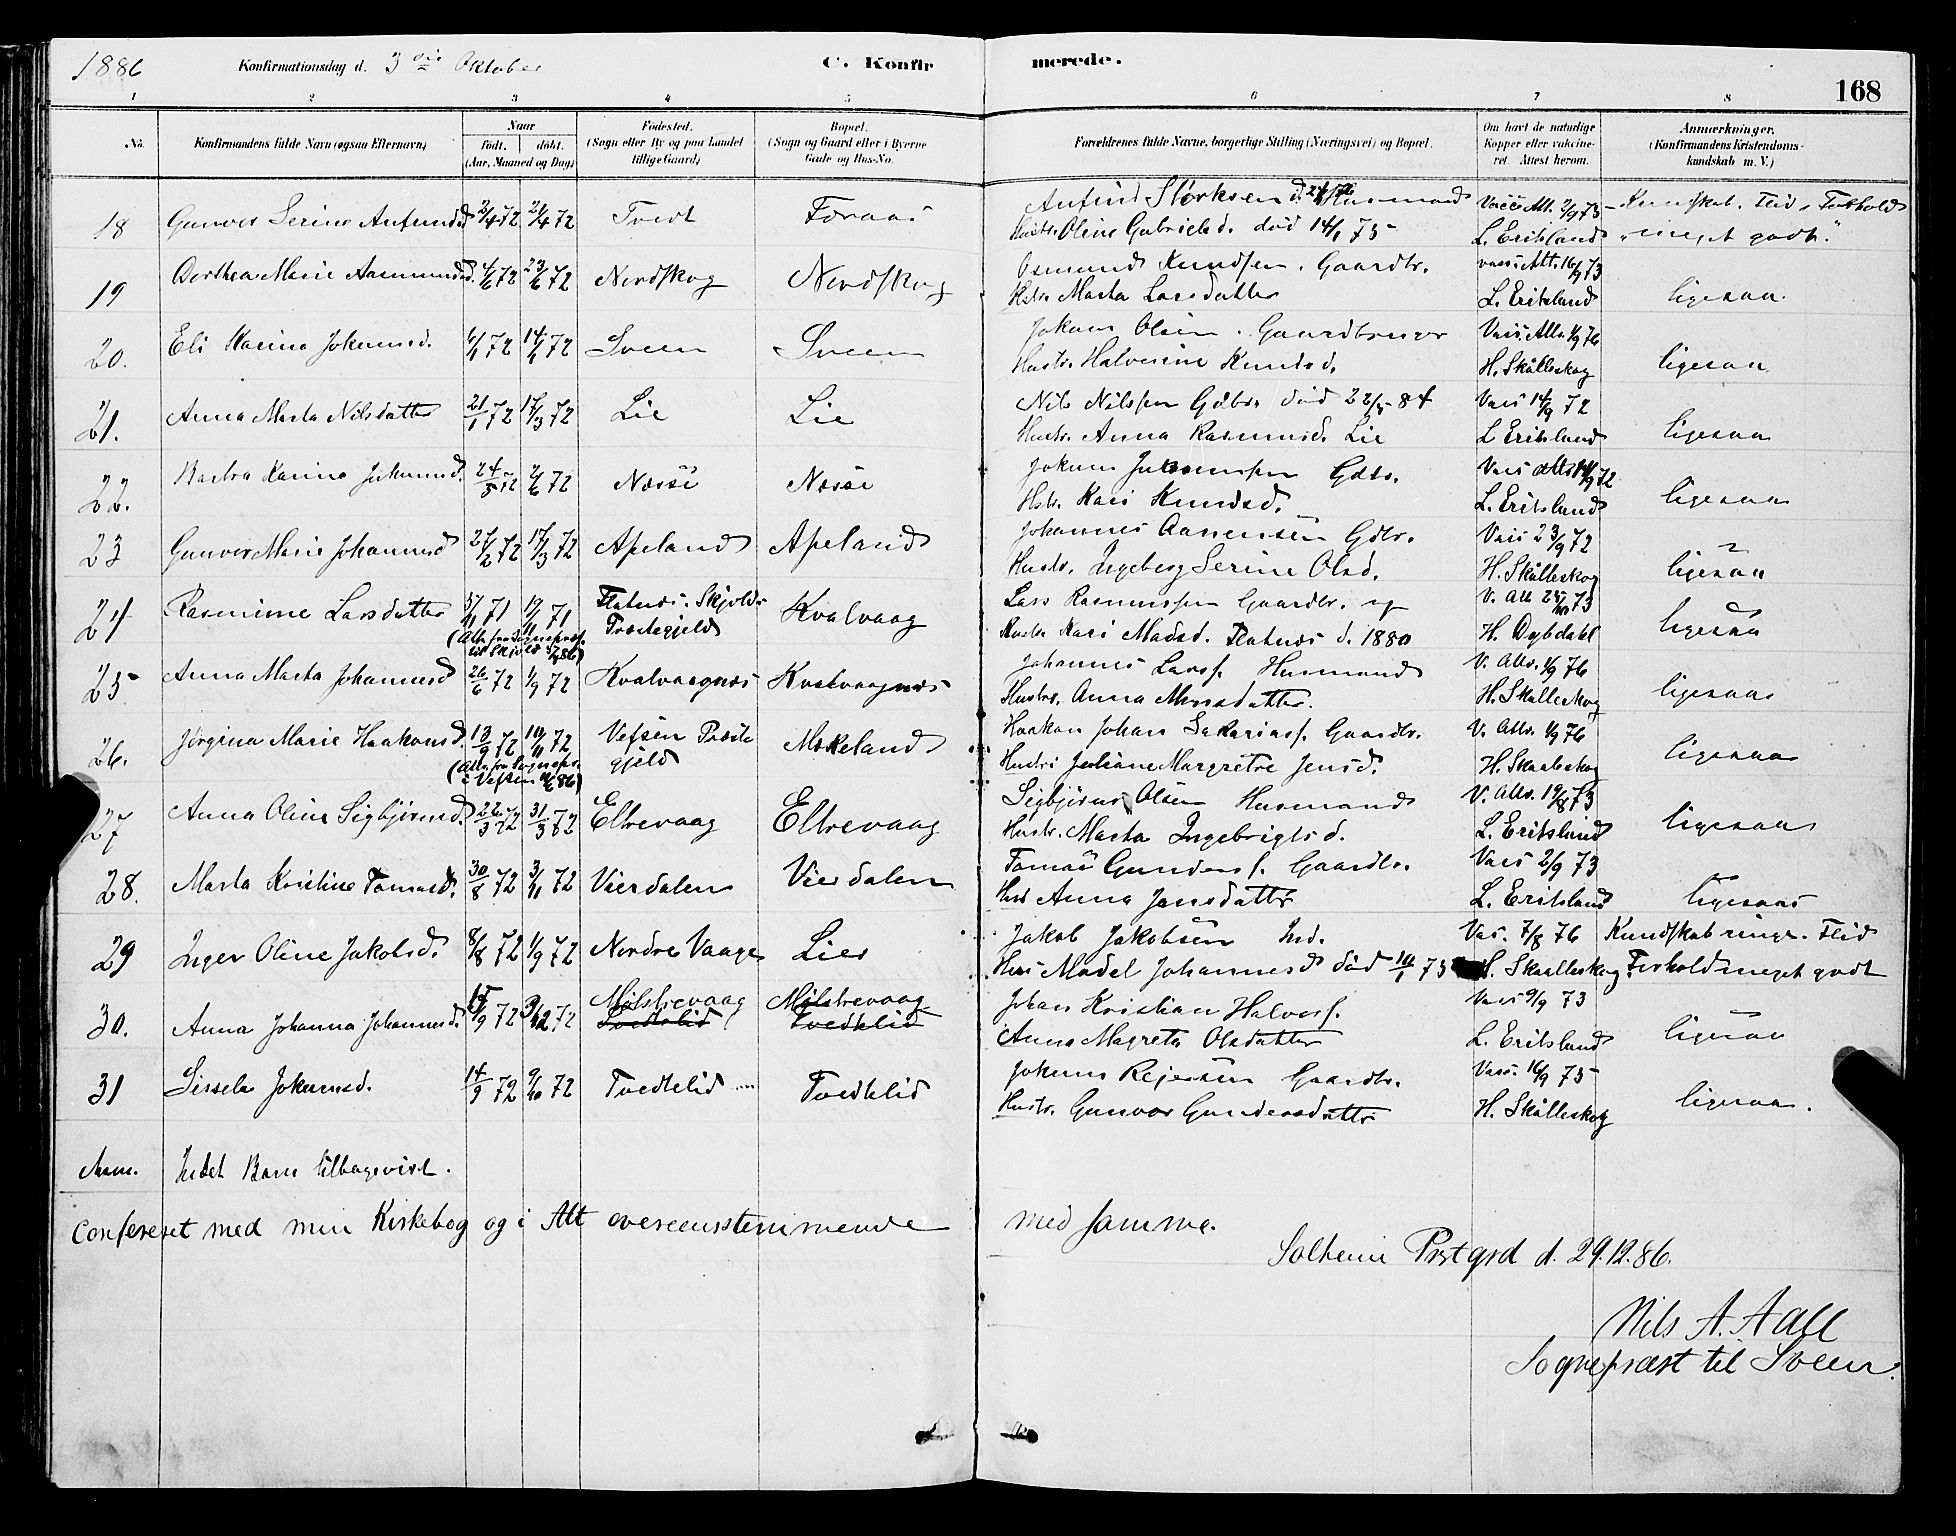 1886 Konfirmationsdag d. 3die Oktober C. Konfirmerede. 168
1 2 3 4 5 6 7 8
No. Konfirmandens fulde Navn (ogsaa Efternavn) Naar født. døbt. (Aar, Maaned og Dag) Fødested. (Sogn eller By og paa Landet tillige Gaard) Bopæl. (Sogn og Gaard eller i Byerne Gade og Hus-No. Forældrenes fulde Navne, borgerlige Stilling (Næringsvei) og Bopæl. Om havt de naturlige Kopper eller vaccineret. Attest herom. Anmærkninger. (Konfirmandens Kristendomskundskab m. V.)
18 Gunvor Serine Anfinnsd 2/4 72 21/4 72 Tvedt Foraas Anfind Størksen Husmand Vacc. Att. 2/9 73 Kundskab. Flid, Forhold
Hustr. Oline Gabrielsd. død 14/1 75 L. Eritsland "meget godt."
19 Dorthea Marie Aasmundsd. 4/6 72 23/6 72 Nordskog Nordskog Osmund Knudsen. Gaardbr. vacc. Att. 16/9 73
Hstr. Marta Larsdatter L. Eritsland ligesaa.
20. Eli Karina Jokumsd. 1/1 72 14/1 72 Sveen Sveen Jokum Olsen. Gaardbruger Vacc. Att. 1/9 76
Hustr. Halvorine Knudsd. H. Skålleskog ligesaa
21. Anna Marta Nilsdatter 21/1 72 17/3 72 Lie Lie Nils Nilssen Gdbr. død 22/5 84 Vacc 14/9 72
Hustr. Anna Rasmusd. Lie L Eritsland ligesaa
22. Karina Jokumsd. 24/5 72 2/6 72 Næsse Næsse Jokum Gdbr. Vacc Att. 14/9 72
Hstr. Kari Knudsd. L. Eritsland ligesaa
23 Gunvor Marie Johannesd 27/2 72 17/3 72 Apeland Apeland Johannes Aanensen Gdbr. Vacc 23/9 72
Hustr. Ingeborg Serine Olsd. H. Skålleskog ligesaa
24 Rasmine Larsdatter 71 19/11 71 Flatnæs. Skjolds Præstegjeld Kvalvaag Lars Rasmussen Gaardbr. og V. Att 73
(Att. fra Sognepræst. til Skjold 86) Hustr Kari Madsd. Flatnæs d. 1880 H. Dybdahl ligesaa
25 Anna Marta Johannesd 26/6 72 1/9 72 Kvalvaagnæs Kvalvaagnæs Johannes Larss. Husmand V. Att. 1/9 76
Hustr. Anna Monsdatter. H. Skålleskog ligesaa
26. Jørgina Marie Haakonsd. 18/9 72 10/11 72 Vefsen Præstegjeld Mækeland Haakon Johan Sakariass. Gaardbr. V. Att. 1/9 76
(Att. fra Sognepr. i Vefsen 86) Hustr. Juliane Margrethe Jensd. H. Skaaleskog ligesaa
27 Anna Oline Sigbjørnsd. 22/3 72 31/3 72 Eltrevaag Eltrevaag Sigbjørn Olsen Husmand V. Att. 19/8 73
Hustr. Marta Ingebrigtsd. L. Eritsland ligesaa
28. Marta Kristine Tomasd. 30/8 72 3/11 72 Vierdalen Vierdalen Tomas Gunders. Gaardbr. Vacc 2/9 73
Hus Anna Jansdatter L. Eritsland ligesaa
29 Inger Oline Jakobsd. 8/8 72 1/9 72 Nordre Vaage Lier Jakob Jakobsen Ind. Vac. 7/8 76 Kundskab ringe. Flid
Hus Madel Johannesd død 10/1 73 H. Skaalleskog Forhold meget godt
30. Anna Johanna Johannesd. 15/9 72 3/12 72 Mølstrevaag Mølstrevaag Johan Kristian Halvors. Vacc 9/9 73
Tvedtelid Tvedtelid Anna Magreta Olsdatter L. Eritsland ligesaa
31 Sissela Jokumsd. 14/9 72 9/10 72 Tvedtelid Tvedtelid Jokum Rejersen Gaardbr. Vacc. 16/9 75
Hustr. Gunvor Gundersdatter H. Skålleskog ligesaa.
Anm. Intet Barn tilbagevist.
Confereret med min Kirkebog og i Alt overeensstemmende med samme.
Solheim Prstgrd d. 29.12.86.
Nils A. Aall
Sognepræst til Sveen.